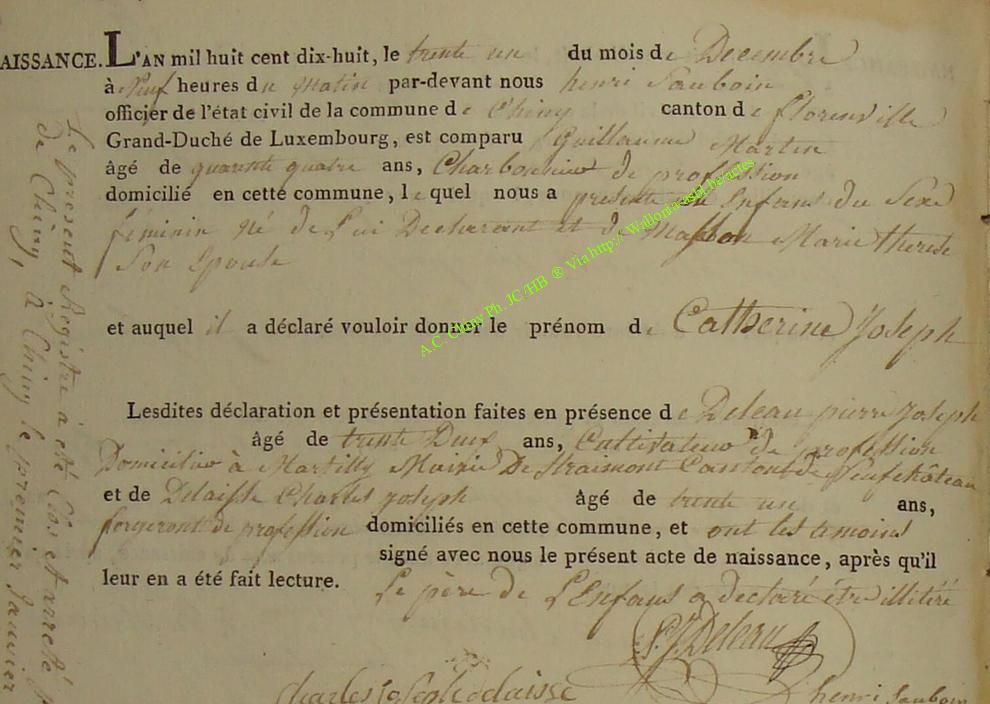 AISSANCE. L'AN mil huit cent dix-huit, le trente un du mois de Decembre
à Neuf heures du Matin par-devant nous henri Sauboin
officier de l'état civil de la commune de Chiny canton de florenville
Grand-Duché de Luxembourg, est comparu Guillaume Martin
âgé de quarante quatre ans, Charbonnier de profession
domicilié en cette commune, le quel nous a presenté un Enfans du Sexe
féminin né de Lui Declarant et de Masson Marie therese
Son Epouse
et auquel il a déclaré vouloir donner le prénom de Catherine Joseph
Lesdites déclaration et présentation faites en présence de Deleau pierre Joseph
âgé de trente Deux ans, Cultivateur de profession
Domicilié à Martilly Mairie De Straimont Canton de Neufchâteau
et de Delaisse Charles Joseph âgé de trente un ans,
forgeront de profession domiciliés en cette commune, et ont les temoins
signé avec nous le présent acte de naissance, après qu'il
leur en a été fait lecture.
Le père de L'Enfans a déclaré être illitéré
P. J. Deleau
Charles Joseph delaisse henri Sauboin
Le present Registre a eté Clos et arreté
de Chiny, à Chiny le premier Janvier
A.C. Chiny Ph. JC /HB ® Via http://Wallonia.asbl.be/actes